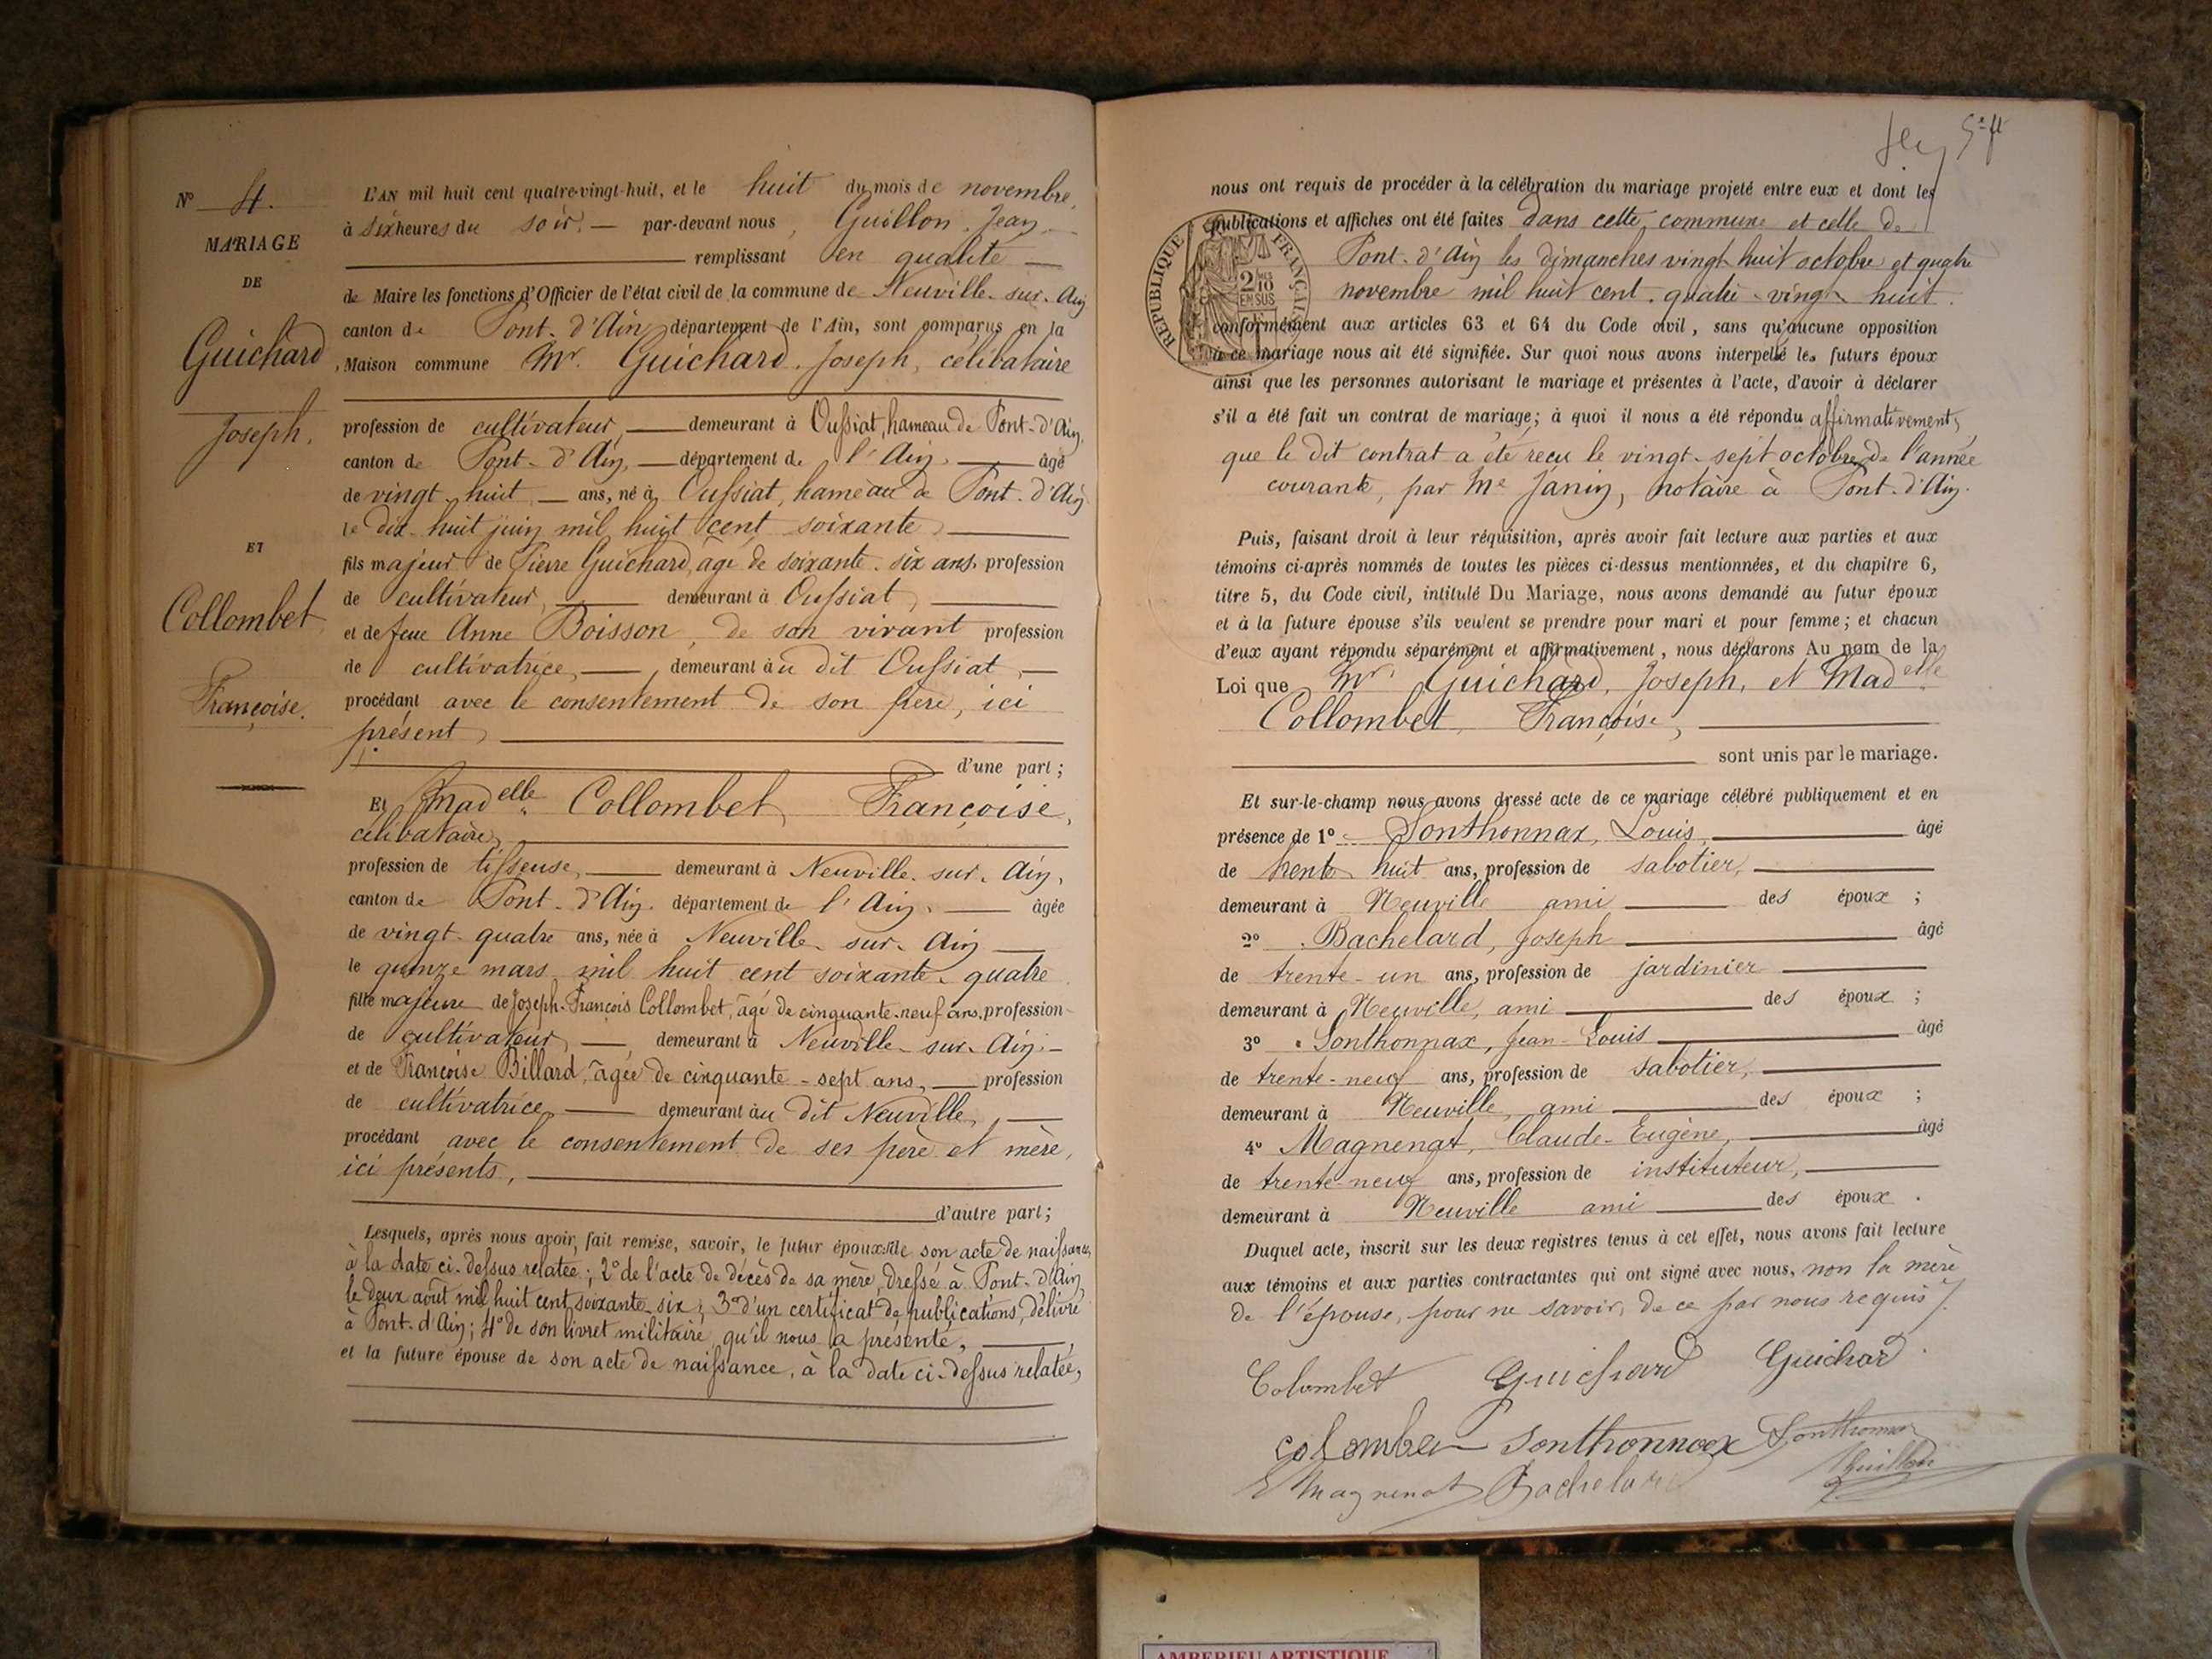 N° 4.
MARIAGE
DE
Guichard
Joseph.
ET
Collombet
Françoise.
L'AN mil huit cent quatre-vingt-huit, et le huit du mois de novembre,
à six heures du soir, — par-devant nous, Guillon, Jean
remplissant en qualité —
de Maire les fonctions d'Officier de l'état civil de la commune de Neuville-sur-Ain
canton de Pont-d'Ain, département de l'Ain, sont comparus en la
Maison commune Mr. Guichard, Joseph, célibataire
profession de cultivateur, — demeurant à Oussiat, hameau de Pont-d'Ain,
canton de Pont-d'Ain, — département de l'Ain. — âgé
de vingt-huit — ans, né à Oussiat, hameau de Pont-d'Ain.
le dix-huit juin mil huit cent soixante, —
fils majeur de Pierre Guichard, âgé de soixante-six ans, profession
de cultivateur, — demeurant à Oussiat, —
et de feue Anne Boisson, de son vivant profession
de cultivatrice, — demeurant au dit Oussiat, —
procédant avec le consentement de son père, ici
présent, —
d'une part;
Et Madelle. Collombet, Françoise,
célibataire, —
profession de tisseuse, — demeurant à Neuville-sur-Ain,
canton de Pont-d'Ain. département de l'Ain. — âgée
de vingt-quatre ans, née à Neuville-sur-Ain —
le quinze mars mil huit cent soixante-quatre
fille majeure de Joseph-François Collombet, âgé de cinquante-neuf ans, profession
de cultivateur, — demeurant à Neuville-sur-Ain. —
et de Françoise Billard, âgée de cinquante-sept ans, — profession
de cultivatrice, — demeurant au dit Neuville, —
procédant avec le consentement de ses père et mère,
ici présents, —
d'autre part;
Lesquels, après nous avoir fait remise, savoir, le futur époux: 1° de son acte de naissance,
à la date ci-dessus relatée; 2° de l'acte de décès de sa mère, dressé à Pont-d'Ain,
le deux août mil huit cent soixante-six; 3° d'un certificat de publications, délivré
à Pont-d'Ain; 4° de son livret militaire, qu'il nous a présenté, —
et la future épouse de son acte de naissance, à la date ci-dessus relatée,
nous ont requis de procéder à la célébration du mariage projeté entre eux et dont les
publications et affiches ont été faites dans cette commune et celle de
Pont-d'Ain les dimanches vingt-huit octobre et quatre
novembre mil huit cent quatre-vingt-huit.
REPUBLIQUE FRANÇAISE
2/10 EN SUS
conformément aux articles 63 et 64 du Code civil, sans qu'aucune opposition
à ce mariage nous ait été signifiée. Sur quoi nous avons interpellé les futurs époux
ainsi que les personnes autorisant le mariage et présentes à l'acte, d'avoir à déclarer
s'il a été fait un contrat de mariage; à quoi il nous a été répondu affirmativement,
que le dit contrat a été reçu le vingt-sept octobre de l'année
courante, par Me Janin, notaire à Pont-d'Ain.
Puis, faisant droit à leur réquisition, après avoir fait lecture aux parties et aux
témoins ci-après nommés de toutes les pièces ci-dessus mentionnées, et du chapitre 6,
titre 5, du Code civil, intitulé Du Mariage, nous avons demandé au futur époux
et à la future épouse s'ils veulent se prendre pour mari et pour femme; et chacun
d'eux ayant répondu séparément et affirmativement, nous déclarons Au nom de la
Loi que Mr. Guichard, Joseph, et Madelle.
Collombet, Françoise, —
sont unis par le mariage.
Et sur-le-champ nous avons dressé acte de ce mariage célébré publiquement et en
présence de 1° Sonthonnax, Louis, — âgé
de trente-huit ans, profession de sabotier, —
demeurant à Neuville ami — des époux;
2° Bachelard, Joseph — âgé
de trente-un ans, profession de jardinier —
demeurant à Neuville, ami — des époux;
3° Sonthonnax, Jean-Louis — âgé
de trente-neuf ans, profession de sabotier, —
demeurant à Neuville, ami — des époux;
4° Magnenat, Claude-Eugène, — âgé
de trente-neuf ans, profession de instituteur, —
demeurant à Neuville ami — des époux.
Duquel acte, inscrit sur les deux registres tenus à cet effet, nous avons fait lecture
aux témoins et aux parties contractantes qui ont signé avec nous, non la mère
de l'épouse, pour ne savoir, de ce par nous requis.
Colombet Guichard Guichard
colombet Sonthonnax Sonthonnax
E Magnenat Bachelard Guillon
AMBERIEU ARTISTIQUE